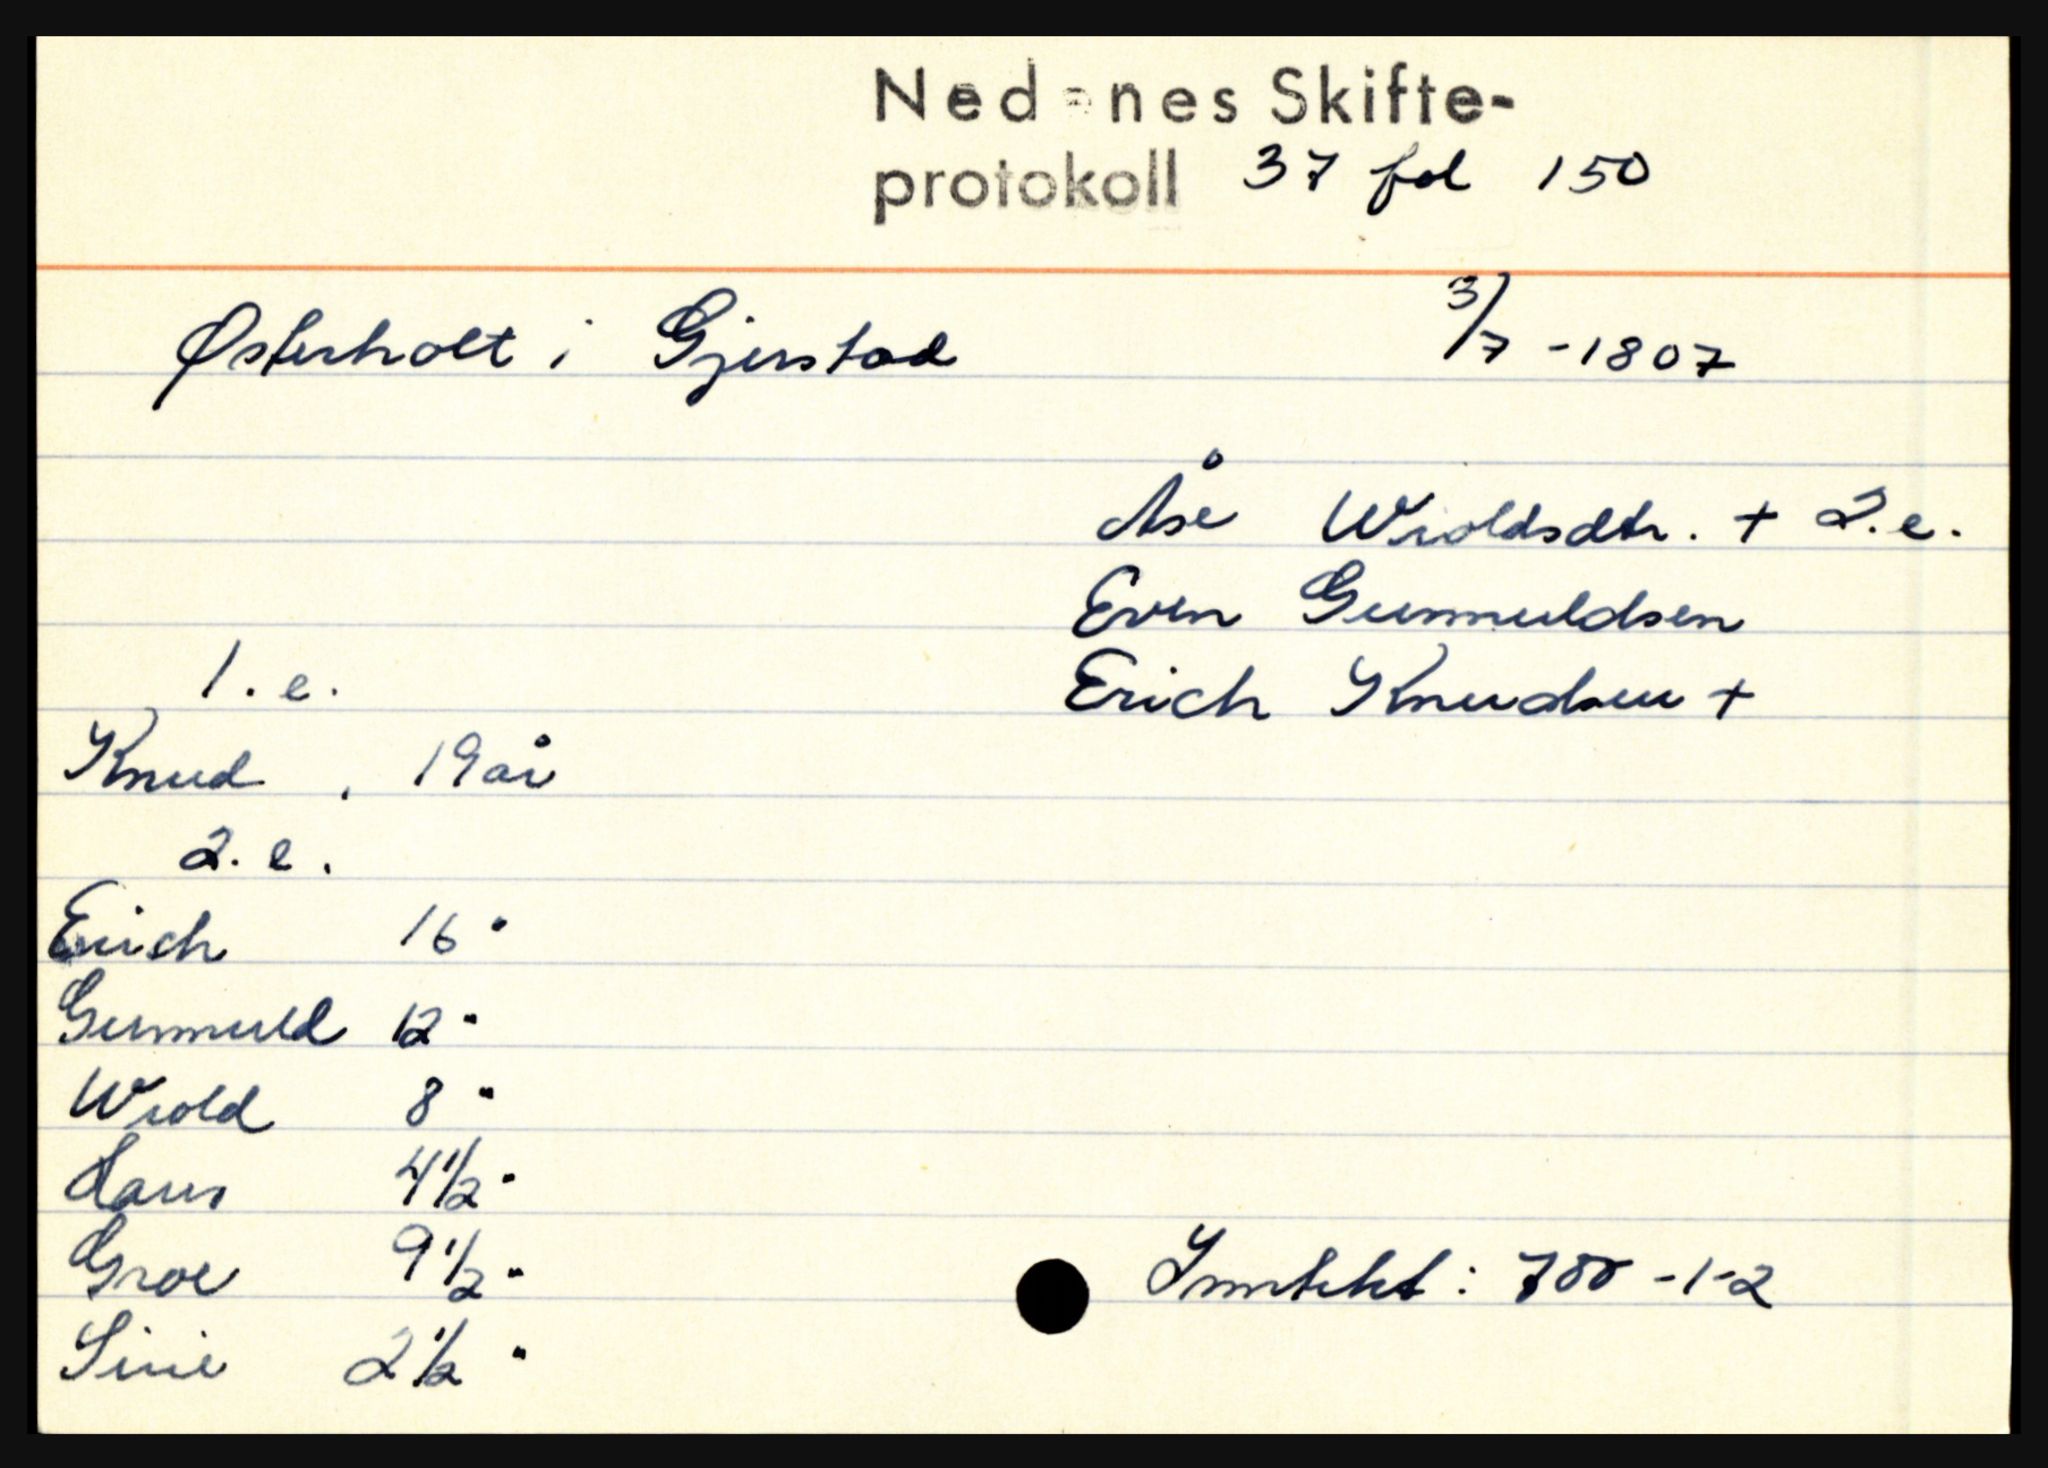 Nedenes Skifte-
protokoll 37 fol 150
Østerholt i Gjerstad 3/7 -1807
Åse Wroldsdtr. + 2.e.
Even Gunnuldsen
1.e. Erich Knudsen +
Knud , 19 år
2.e.
Erich 16 "
Gunnuld 12 "
Wrold 8 "
Hans 4 1/2 "
Groe 9 1/2 "
Inntekt : 700 -1-2
Sirie 2 1/2 "